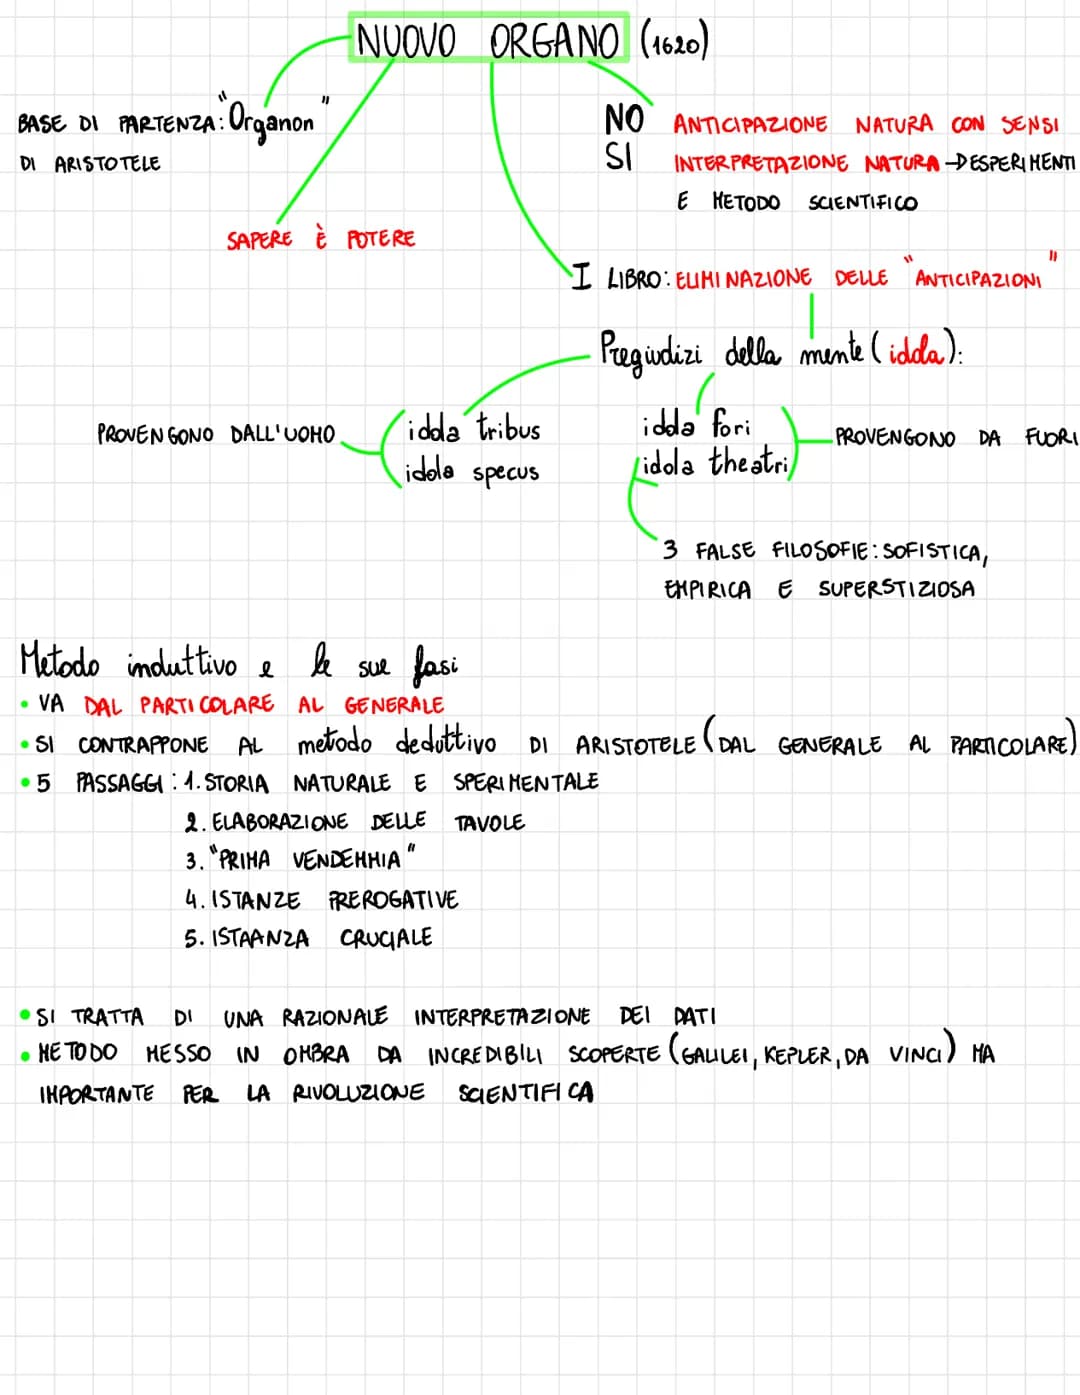 NUOVO ORGANO (1620)
BASE DI PARTENZA: "Organon"
DI ARISTOTELE
NO ANTICIPAZIONE NATURA CON SENSI
SI INTERPRETAZIONE NATURA → ESPERIMENTI
E METODO SCIENTIFICO
SAPERE È POTERE
I LIBRO: ELIMINAZIONE DELLE "ANTICIPAZIONI"
Pregiudizi della mente (idola):
PROVENGONO DALL'UOMO
idola tribus
idola specus
idola fori
idola theatri
PROVENGONO DA FUORI
3 FALSE FILOSOFIE: SOFISTICA,
EMPIRICA E SUPERSTIZIOSA
Metodo induttivo e le sue fasi
• VA DAL PARTICOLARE AL GENERALE
• SI CONTRAPPONE AL metodo deduttivo DI ARISTOTELE (DAL GENERALE AL PARTICOLARE)
• 5 PASSAGGI: 1. STORIA NATURALE E SPERIMENTALE
2. ELABORAZIONE DELLE TAVOLE
3. "PRIMA VENDEMMIA"
4. ISTANZE PREROGATIVE
5. ISTAANZA CRUCIALE
• SI TRATTA DI UNA RAZIONALE INTERPRETAZIONE DEI DATI
• METODO MESSO IN OMBRA DA INCREDIBILI SCOPERTE (GALILEI, KEPLER, DA VINCI) MA
IMPORTANTE PER LA RIVOLUZIONE SCIENTIFICA